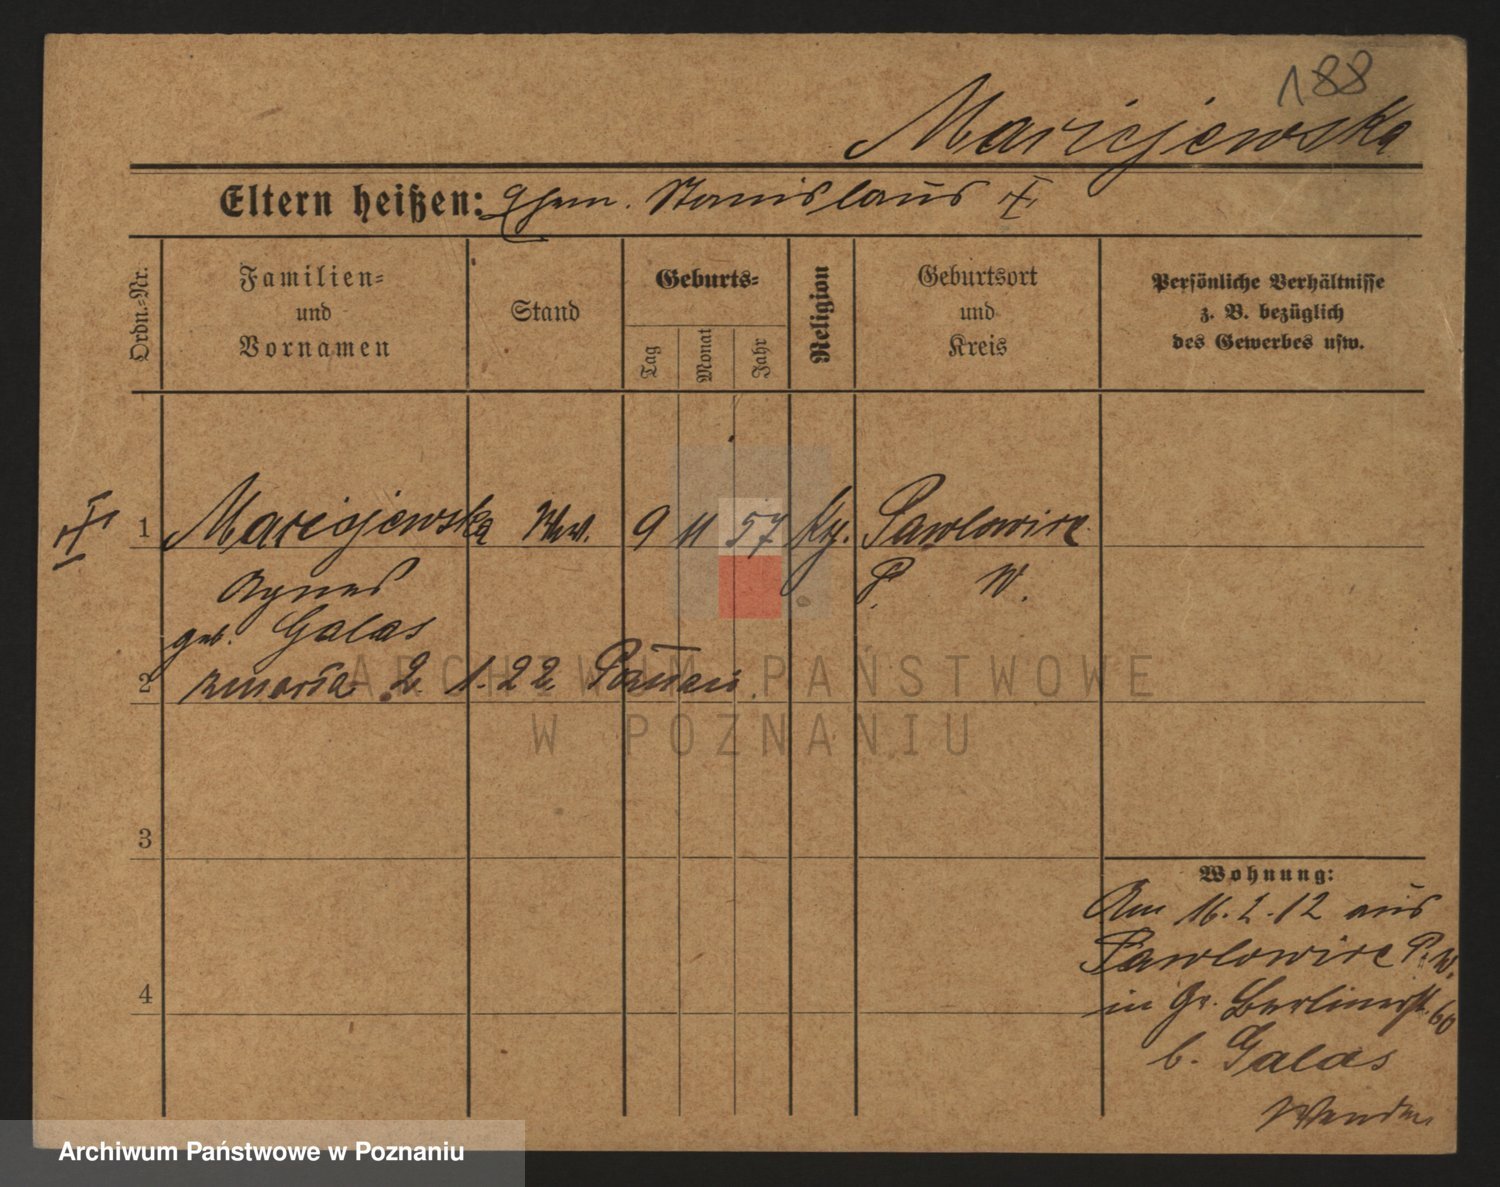 188
Maricjewska
Eltern heißen: Ehem. Stanislaus
Ordn.-Nr.
Familien-
und
Vornamen
Stand
Geburts-
Tag
Monat
Jahr
Religion
Geburtsort
und
Kreis
Persönliche Verhältnisse
z. B. bezüglich
des Gewerbes usw.
1 Maricjewska Ww. 9 11 57 Pawlowice
Agnes P. W.
geb. Galas
2 zmarła 2. 1. 22
3
4
Wohnung:
Am 16. 2. 12 aus
Pawlowice P. W.
in Gr. Berlinerstr. 60
b. Galas
Wenden
ARCHIWUM PAŃSTWOWE
W POZNANIU
Archiwum Państwowe w Poznaniu